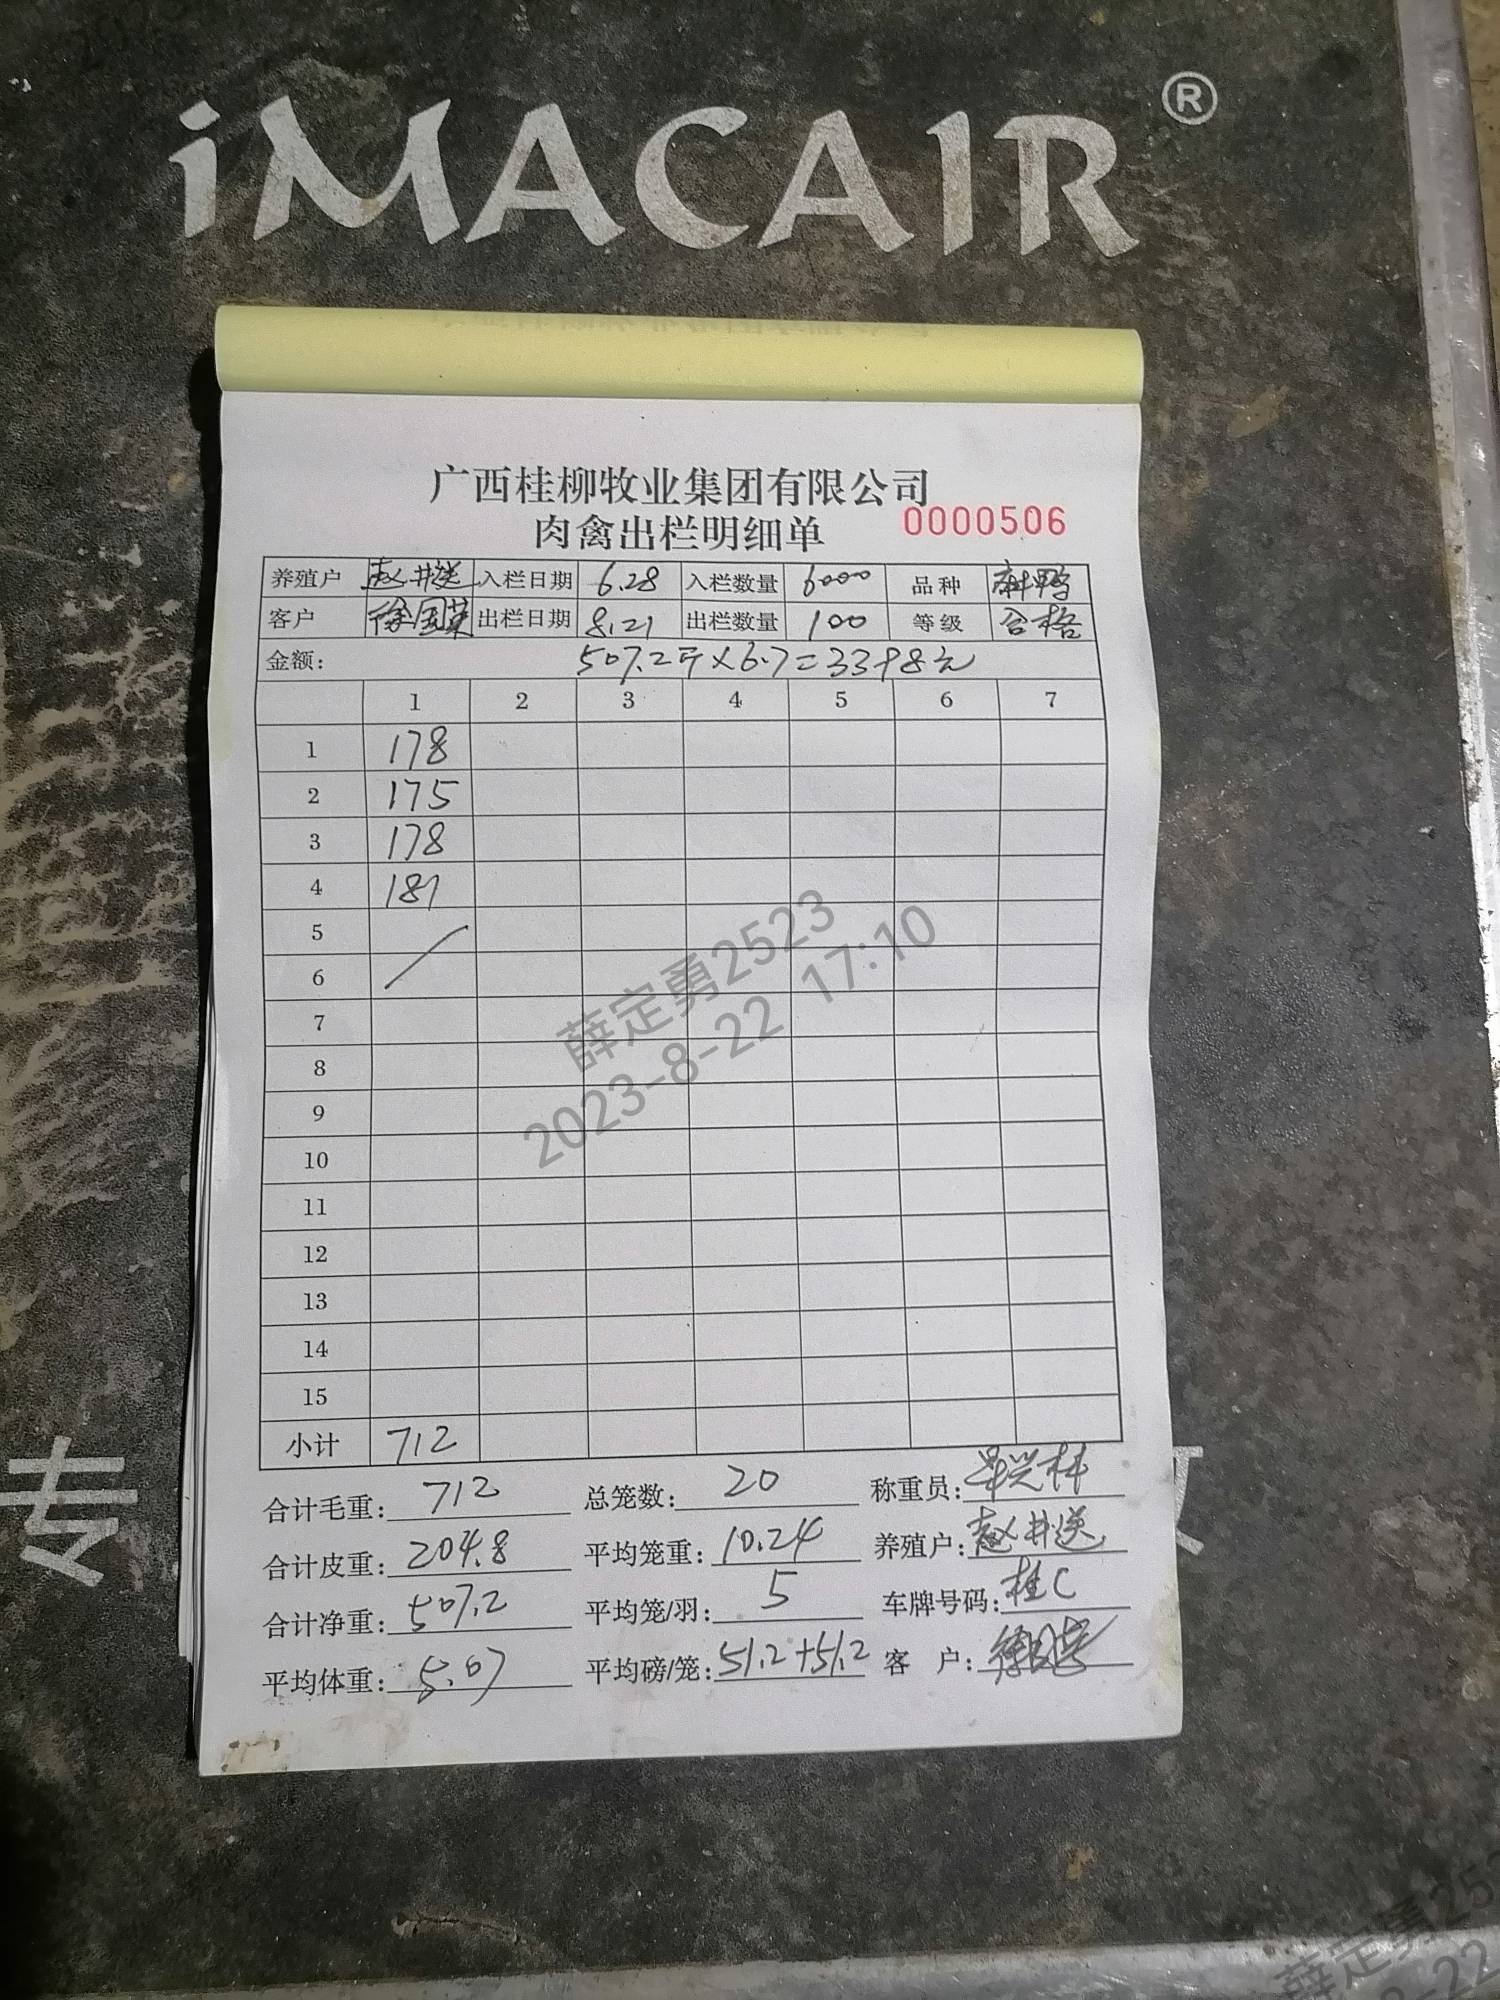 iMACAIR®
广西桂柳牧业集团有限公司
肉禽出栏明细单 0000506
养殖户 赵井送 入栏日期 6.28 入栏数量 6000 品种 麻鸭
客户 徐国英 出栏日期 8.21 出栏数量 100 等级 合格
金额: 507.2斤×6.7=3398元
1 2 3 4 5 6 7
1 178
2 175
3 178
4 181
5
6
7
8
9
10
11
12
13
14
15
小计 712
合计毛重: 712 总笼数: 20 称重员:
合计皮重: 204.8 平均笼重: 10.24 养殖户: 赵井送
合计净重: 507.2 平均笼/羽: 5 车牌号码: 桂C
平均体重: 5.07 平均磅/笼: 51.2+51.2 客 户:
专
薛定勇2523
2023-8-22 17:10